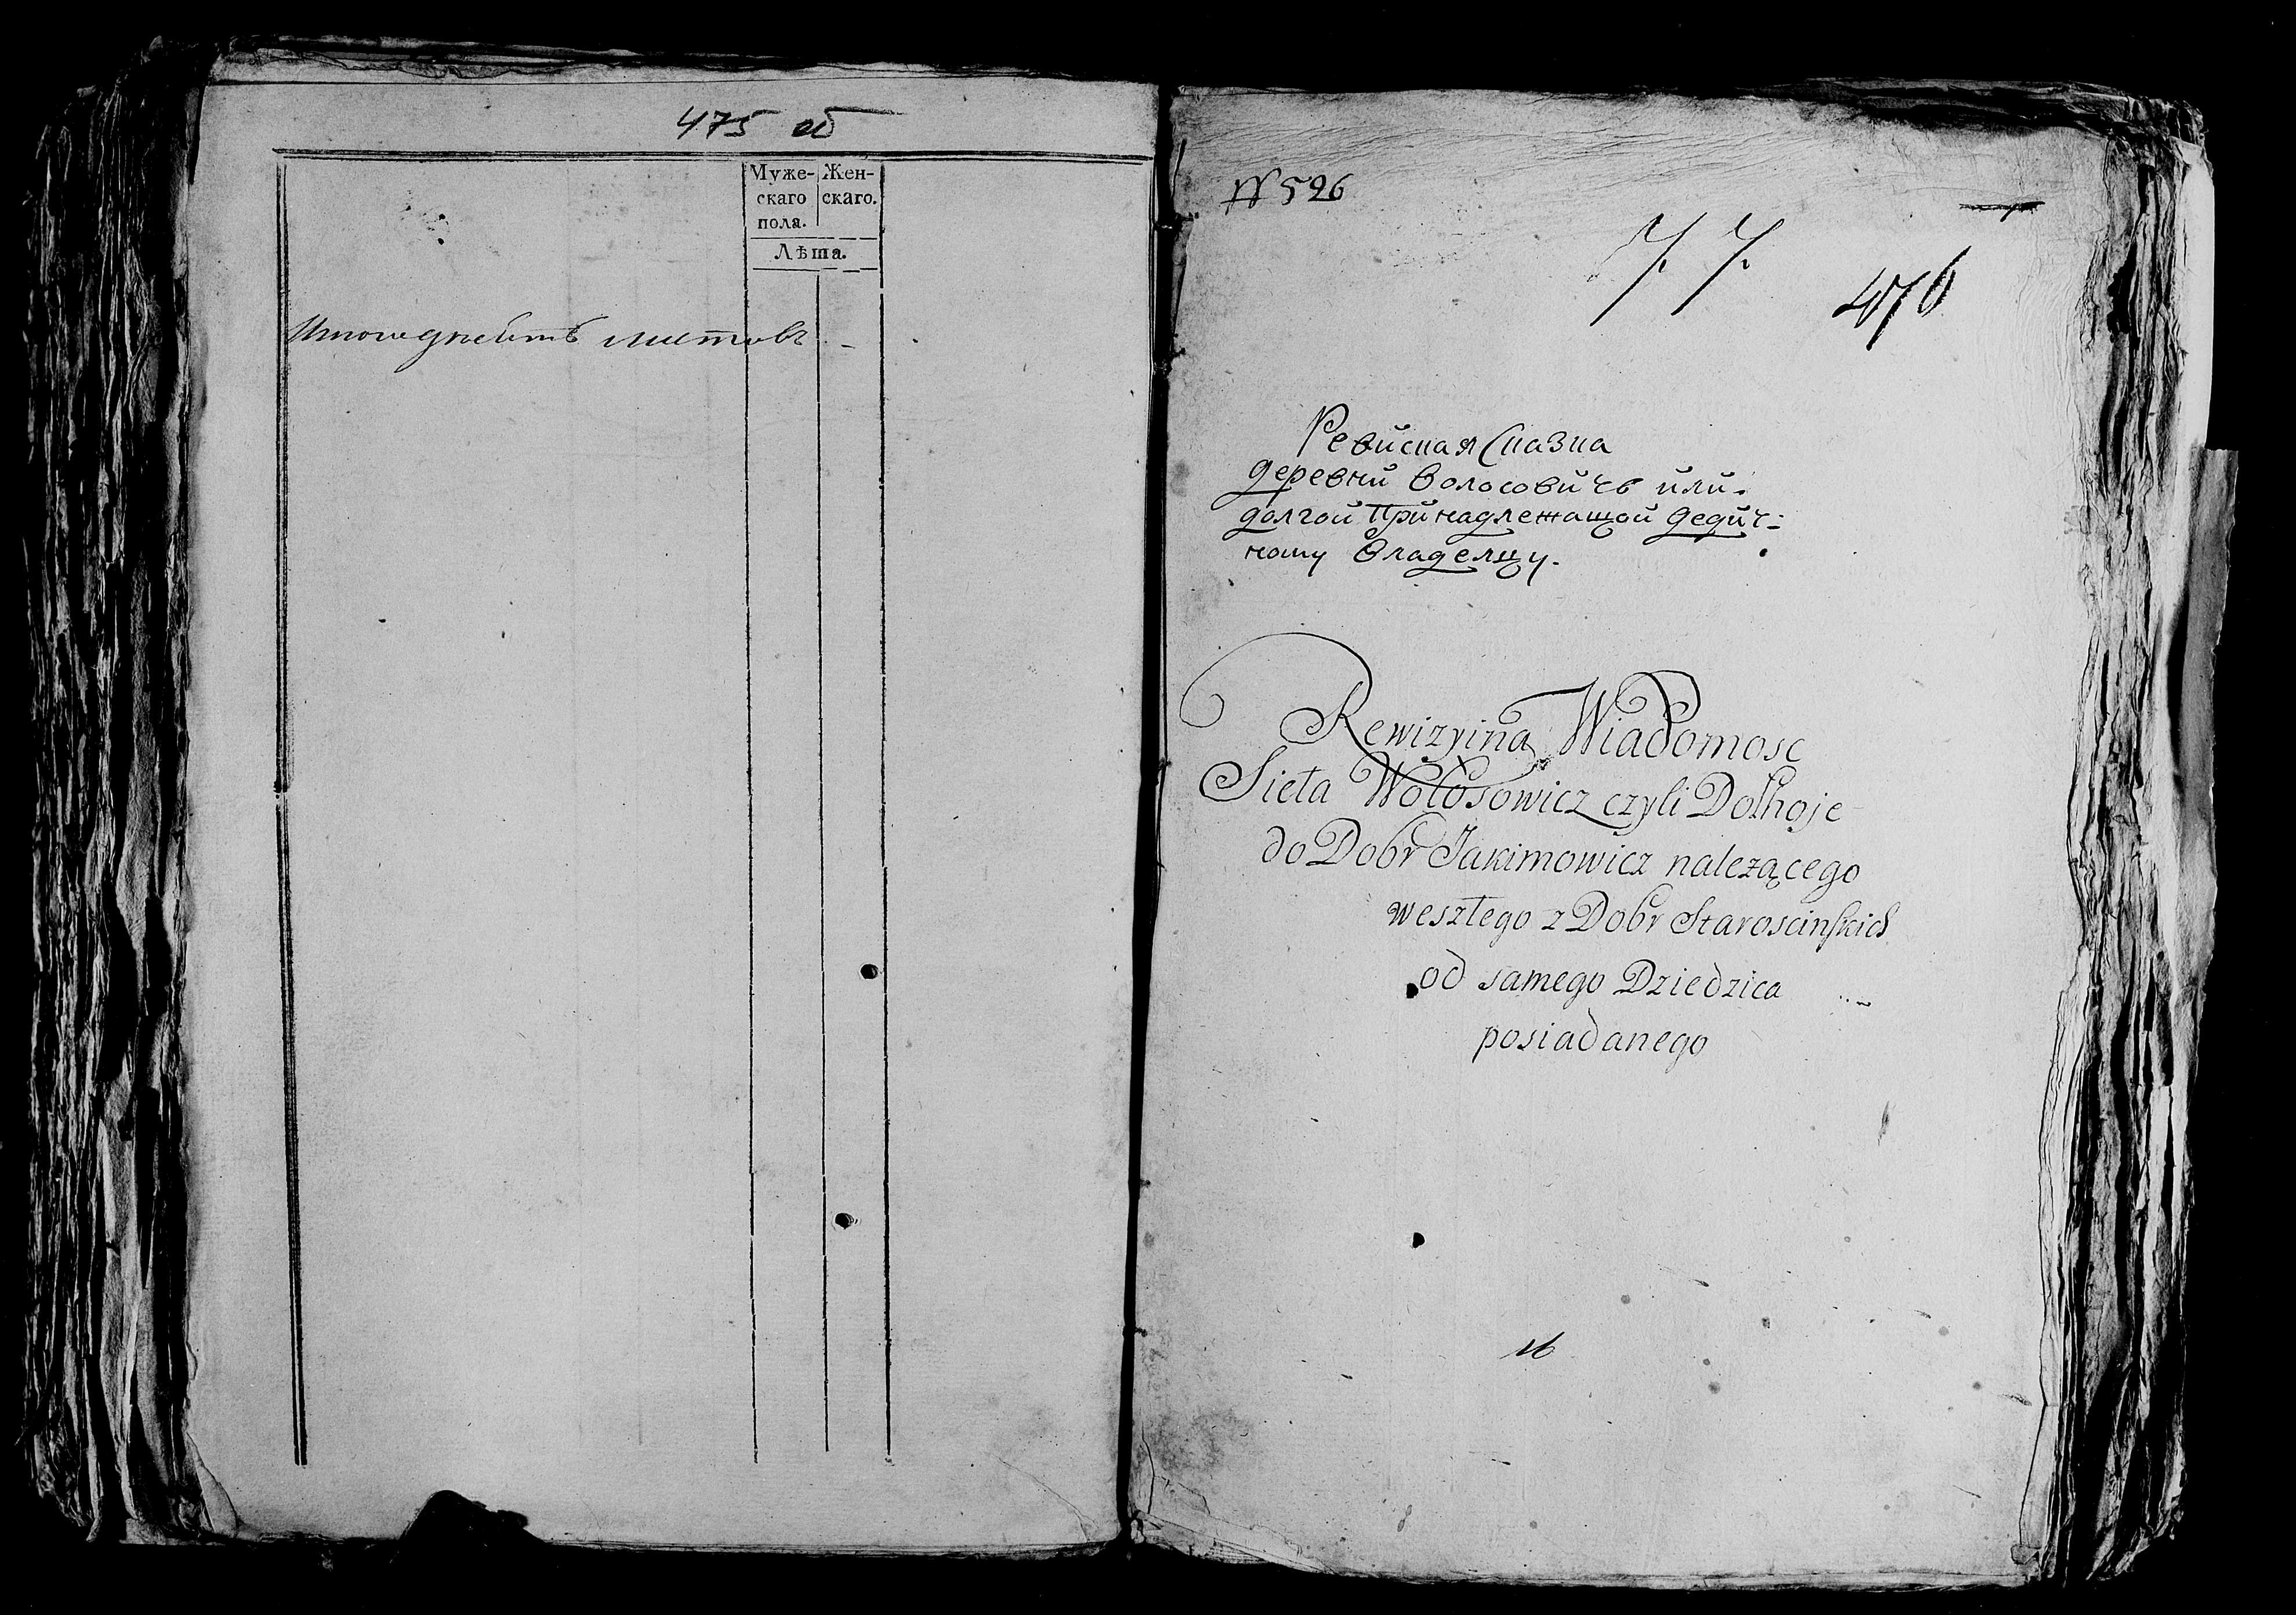 475 об
Муже- Жен-
скаго скаго.
пола.
Лѣта.
листовъ
№ 526
77
476
Ревиская Сказка
деревни Волосовичъ или
долгой Принадлежащой дедич-
ному Владелцу.
Rewizyina Wiadomosc
Sieła Wołosowicz czyli Dołhoje
do Dobr Jakimowicz nalezącego
weszłego z Dobr Staroscinskich
od samego Dziedzica
posiadanego